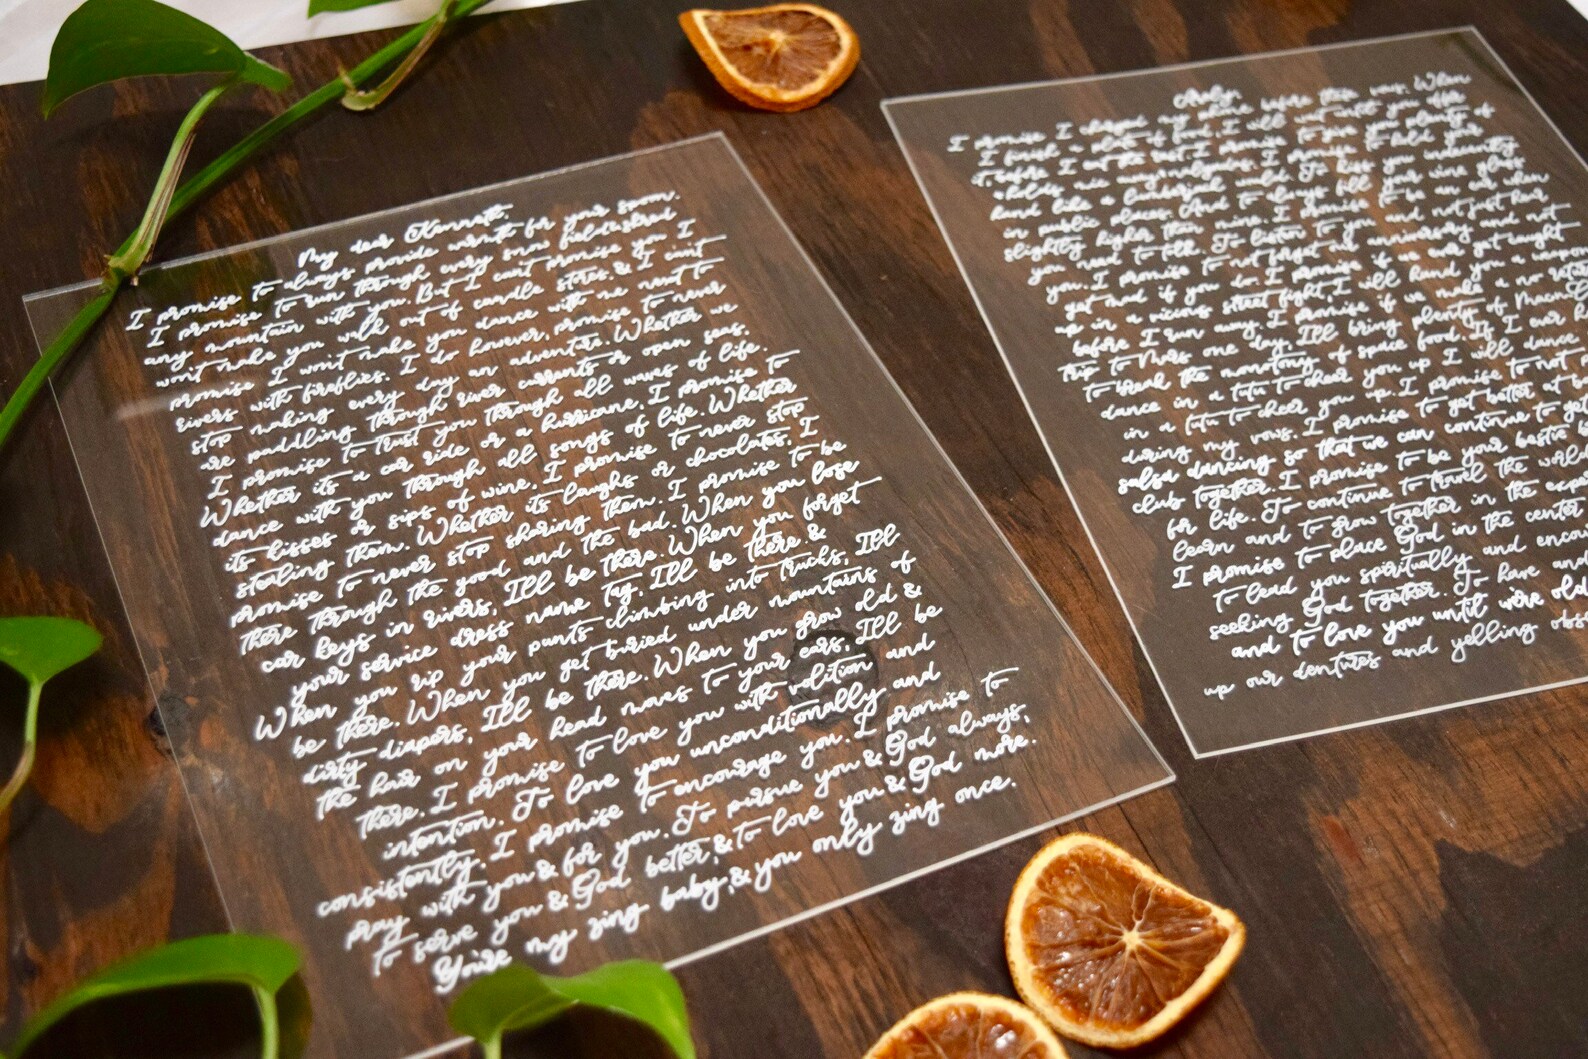 My dear Kenneth,
I promise to always provide warmth for your spoon.
I promise to run through every snow fold
any mountain with you. But I can't promise you I
won't make you walk out of candle stores, & I can't
promise I won't make you dance with me next to
rivers with fireflies. I do however, promise to never
stop making every day an adventure. Whether we
are paddling through river currents or open seas.
I promise to trust you through all waves of life.
Whether its a car ride or a hurricane. I promise to
dance with you through all songs of life. Whether
its kisses or sips of wine, I promise to never stop
stealing them. Whether its laughs or chocolates, I
promise to never stop sharing them. I promise to be
there through the good and the bad. When you lose
car keys in rivers, I'll be there. When you forget
your service dress name tag, I'll be there &
When you rip your pants climbing into trucks, I'll
be there. When you get buried under mountains of
dirty diapers, I'll be there. When you grow old &
the hair on your head moves to your ears, I'll be
there. I promise to love you with volition and
intention. To love you unconditionally and
consistently. I promise to encourage you. I promise to
pray with you & for you. To pursue you & God always,
to serve you & God better, & to love you & God more.
You're my zing baby, & you only zing once.
I promise I chewed my gum before these vows. When
I finish a plate of food, I will wait until you offer
before I eat the rest. I promise to give you plenty of
I promise to hold your
hand like a luxury. To kiss you indecently
in public places. And to always fill your wine glass
slightly higher than mine. I promise to be an ear when
you need to talk. To listen to you and not just hear
you. I promise to not forget our anniversary and not
get mad if you do. I promise if we ever get caught
up in a vicious street fight, I will hand you a weapon
before I run away. I promise if we make a no return
trip to Mars one day, I'll bring plenty of
to break the monotony of space food. If I ever
dance in a tutu to cheer you up I will dance
in a tutu to cheer you up. I promise to not
during my vows. I promise to get better at
salsa dancing so that we can continue to get
club together. I promise to be your bestie
for life. To continue to travel the world
learn and to grow together in the
I promise to place God in the center
to lead you spiritually and
seeking God together. To have and
and to love you until we're old
up our dentures and yelling